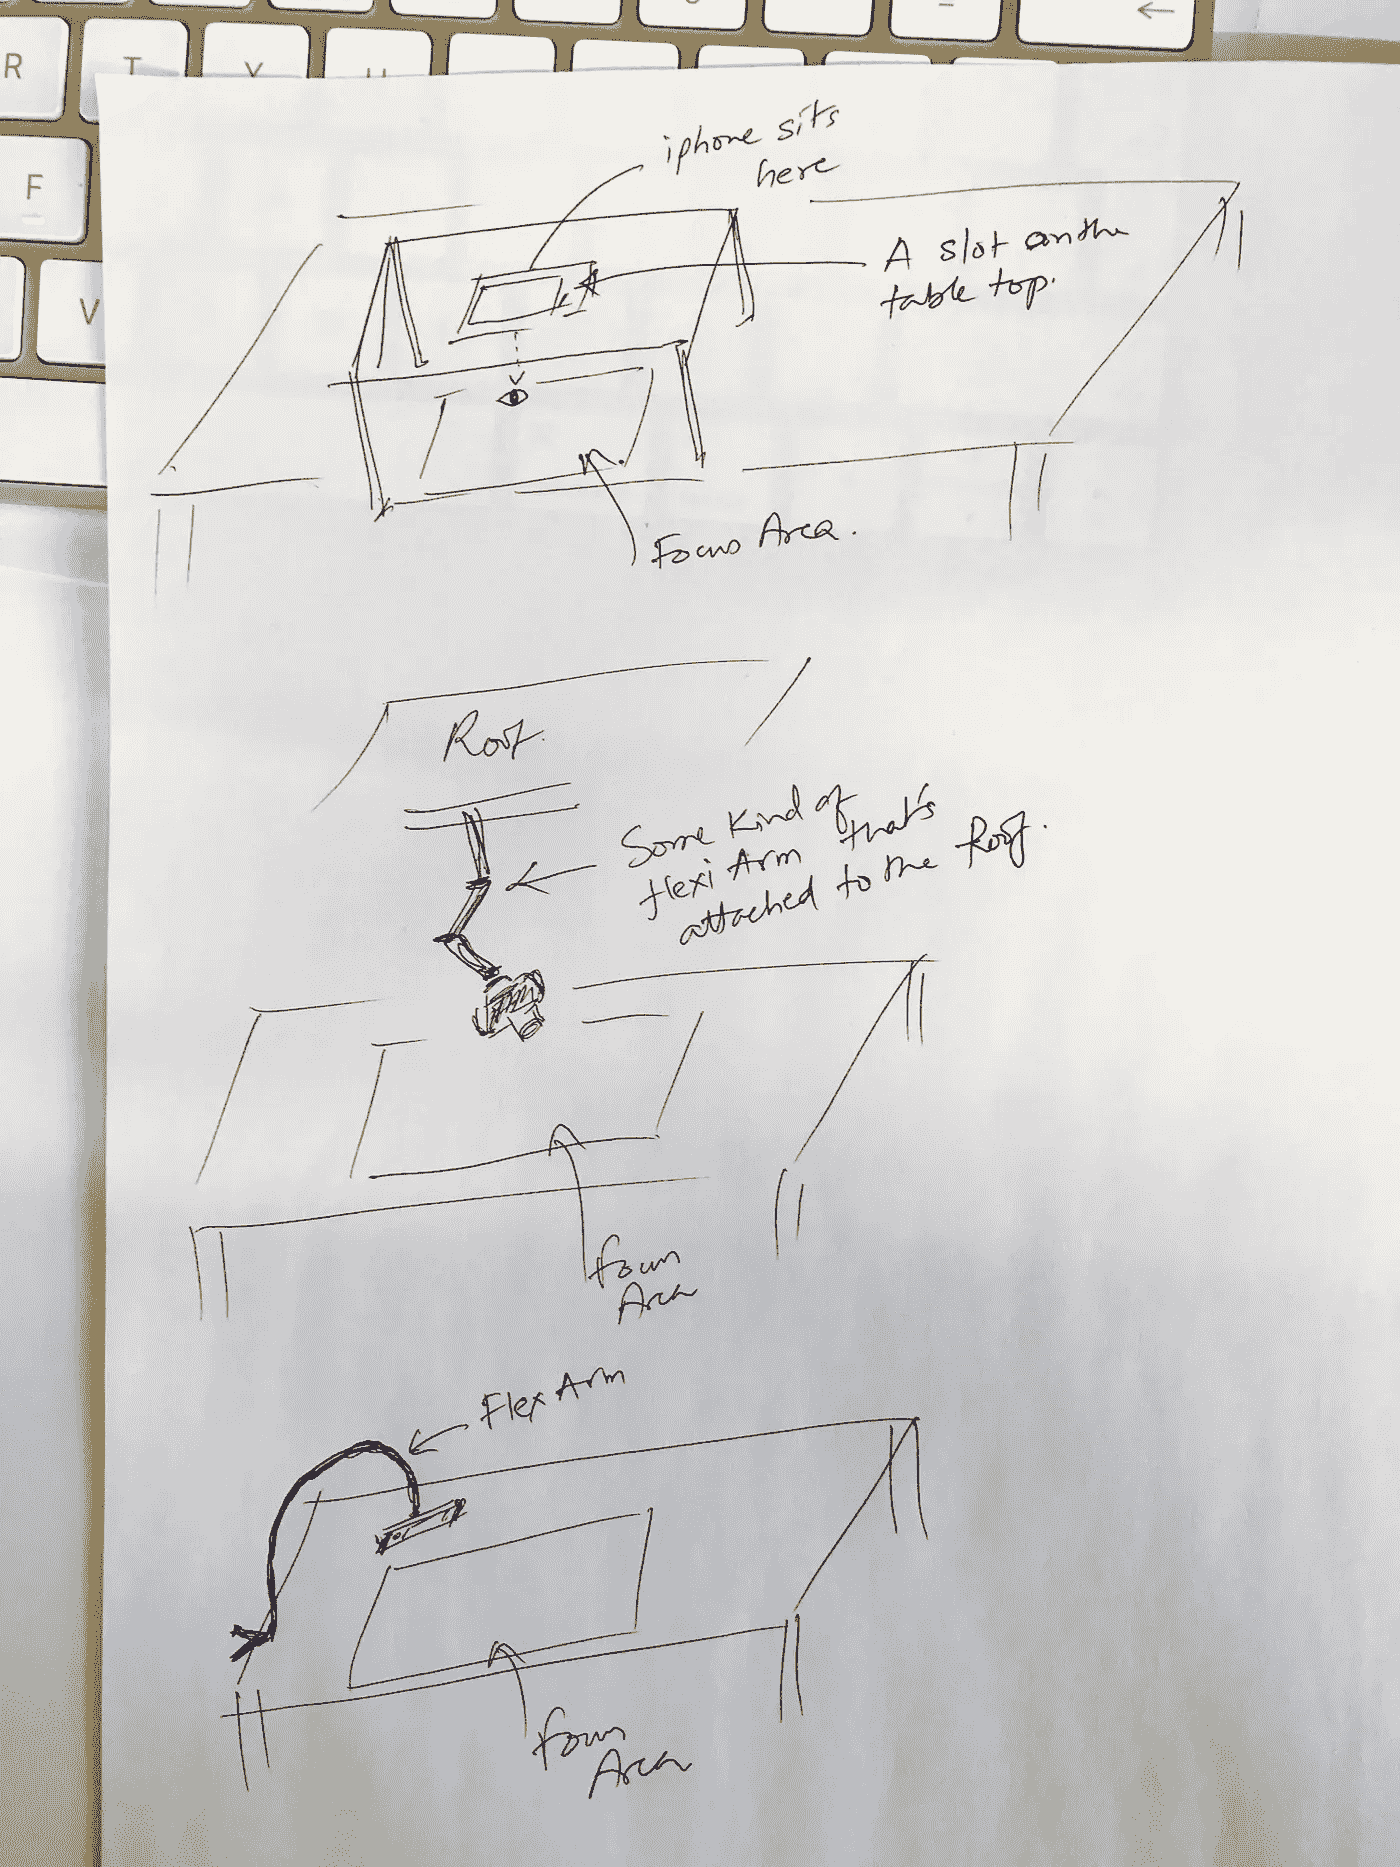 R T Y U
F
V
←
iphone sits
here
A slot on the
table top.
Focus Area.
Roof.
Some kind of
flexi Arm that's
attached to the Roof.
Focus
Area
Flex Arm
Focus
Area